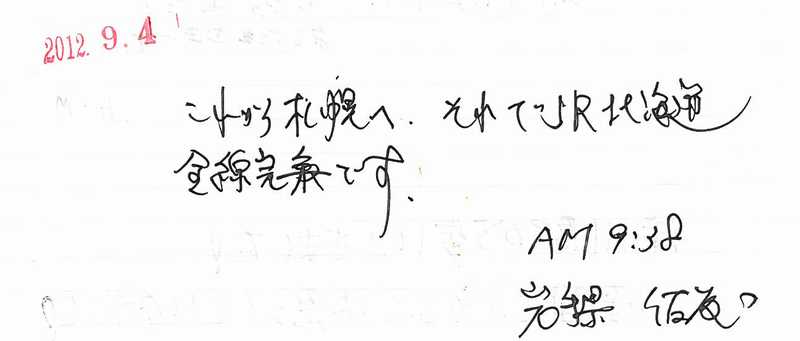 2012. 9. 4
これから札幌へ. それでJR北海道
全線完乗です.
AM 9:38
岩